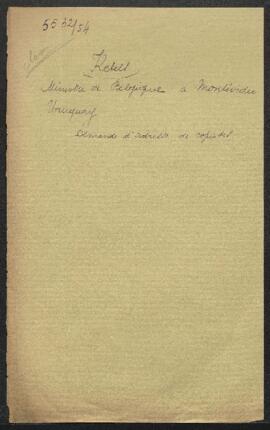 5532/54
Ketels
Ministre de Belgique à Montévideo
Uruguay
Demande d'adresse de